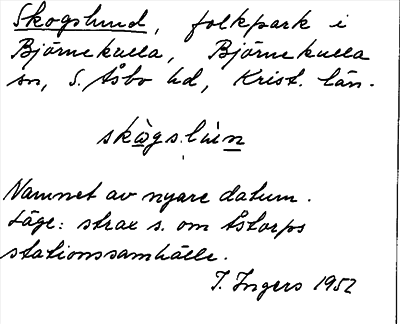 Skogslund, folkpark i
Björnekulla, Björnekulla
sn, S. Åsbo hd, Krist. län.
skògslùn
Namnet av nyare datum.
Läge: strax s. om Åstorps
stationssamhälle.
I. Ingers 1952